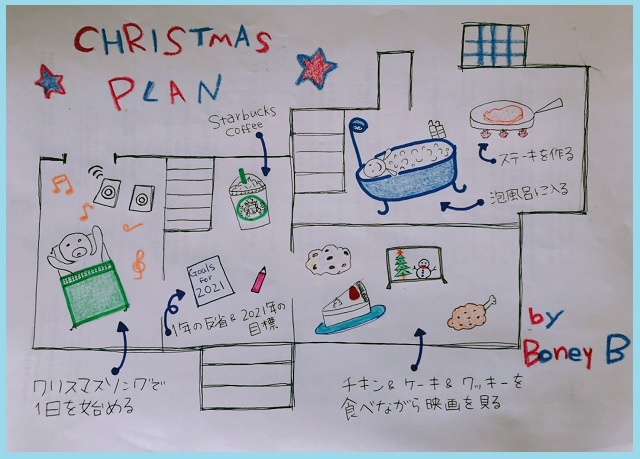 CHRISTMAS
PLAN
Starbucks
Coffee
ステーキを作る
泡風呂に入る
Goals
for
2021
1年の反省&2021年の
目標
by
Boney B
クリスマスソングで
1日を始める
チキン&ケーキ&クッキーを
食べながら映画を見る